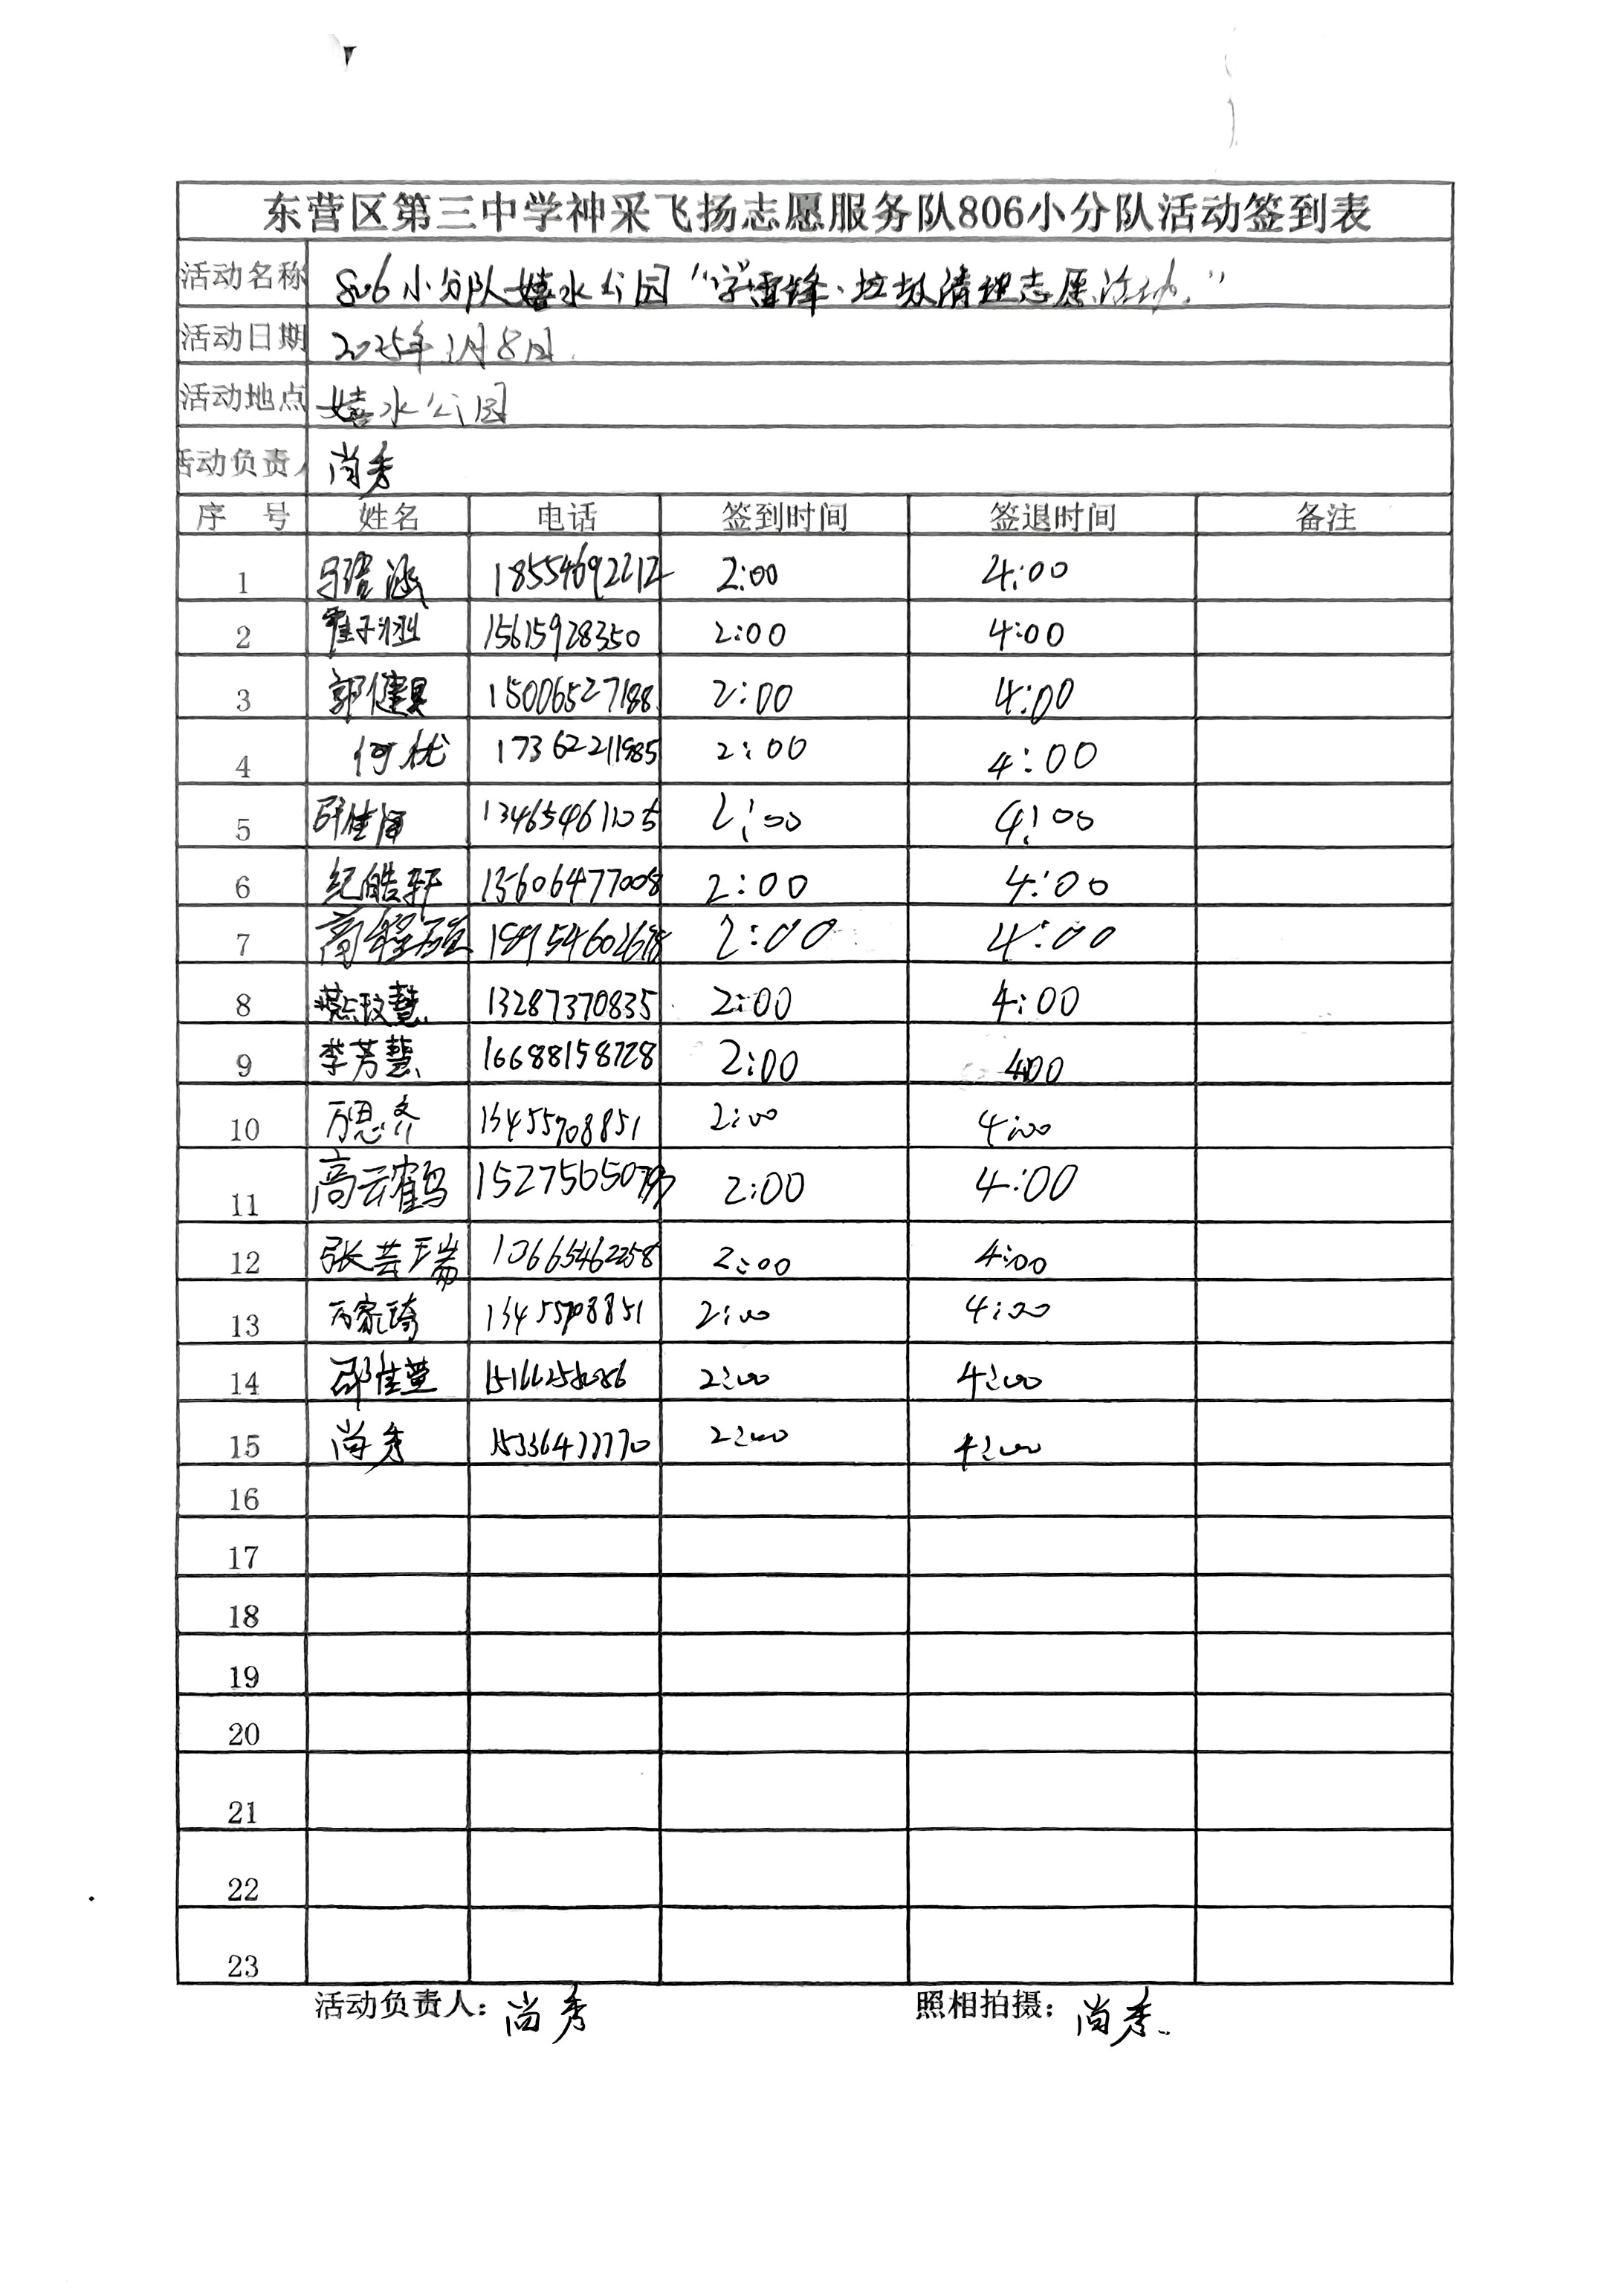 东营区第三中学神采飞扬志愿服务队806小分队活动签到表
活动名称 806小分队嬉水公园“学雷锋、垃圾清理志愿活动.”
活动日期 2025年 月8日
活动地点 嬉水公园
活动负责人 尚秀
序 号 姓名 电话 签到时间 签退时间 备注
1 18554692212 2:00 4:00
2 15615928350 2:00 4:00
3 15006527188 2:00 4:00
4 何优 17362211985 2:00 4:00
5 13465461105 2:00 4:00
6 纪皓轩 13606477008 2:00 4:00
7 2:00 4:00
8 燕玟慧 13287370835 2:00 4:00
9 李芳慧 16688158728 2:00 4:00
10 万思齐 13455708851 2:00 4:00
11 高云鹤 2:00 4:00
12 张芸瑞 13665462258 2:00 4:00
13 万家琦 13455708851 2:00 4:00
14 邵佳萱 2:00 4:00
15 尚秀 15336477770 2:00 4:00
16
17
18
19
20
21
22
23
活动负责人：尚秀 照相拍摄：尚秀.